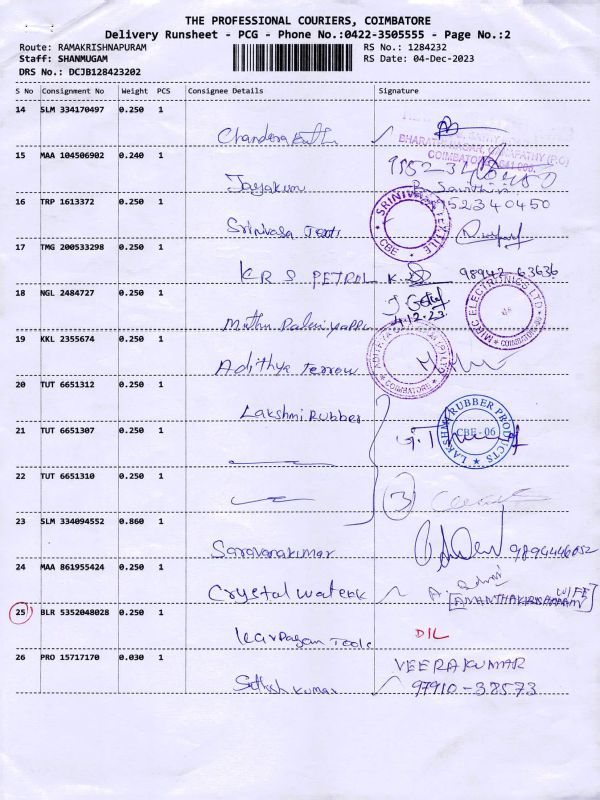 THE PROFESSIONAL COURIERS, COIMBATORE
Delivery Runsheet - PCG - Phone No.:0422-3505555 - Page No.:2
Route: RAMAKRISHNAPURAM RS No.: 1284232
Staff: SHANMUGAM RS Date: 04-Dec-2023
DRS No.: DCJB128423202
S No Consignment No Weight PCS Consignee Details Signature
14 SLM 334170497 0.250 1
BHARATHI NAGAR, GANAPATHY (P.O)
COIMBATORE-641 006.
15 MAA 104506902 0.240 1
Jayakum
16 TRP 1613372 0.250 1 952340450
Srinivasa Texti
SRINIVASA TEXTILE
CBE
17 TMG 200533298 0.250 1
KRS PETROL K. 98942-63636
18 NGL 2484727 0.250 1
4.12.23
MIRC ELECTRONICS LTD
COIMBATORE
19 KKL 2355674 0.250 1
Adithya Ferrow
COIMBATORE
20 TUT 6651312 0.250 1
Lakshmi Rubber
LAKSHMI RUBBER PRODUCTS
CBE-06
21 TUT 6651307 0.250 1
22 TUT 6651310 0.250 1
3
23 SLM 334094552 0.860 1
Saravanakumar 9894446052
24 MAA 861955424 0.250 1
Crystal Waterk A.
WIFE
25 BLR 5352048028 0.250 1
Tools DIL
26 PRO 15717170 0.030 1 VEERAKUMAR
Sathish kumar 97910-38573